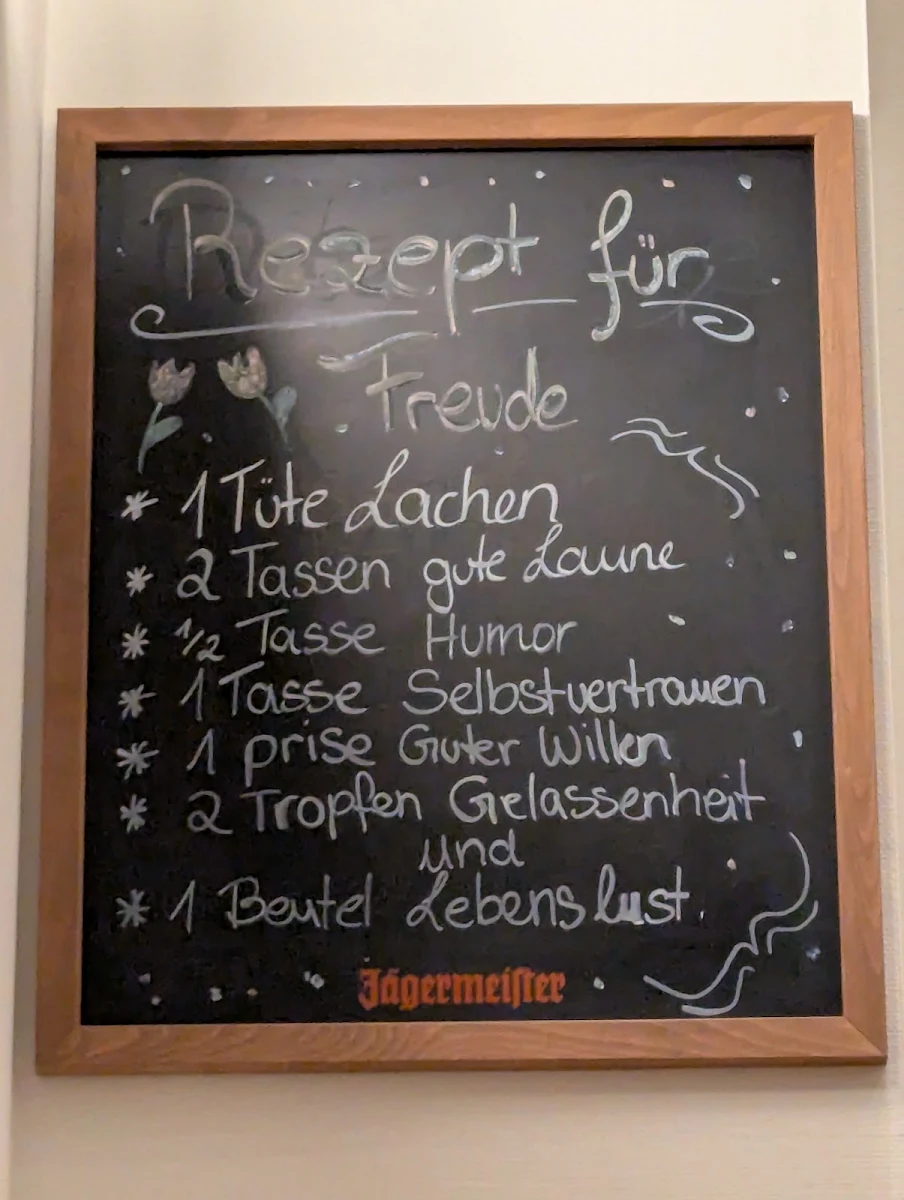 Rezept für
Freude
* 1 Tüte Lachen
* 2 Tassen gute Laune
* 1/2 Tasse Humor
* 1 Tasse Selbstvertrauen
* 1 prise Guter Willen
* 2 Tropfen Gelassenheit
und
* 1 Beutel Lebenslust.
Jägermeiſter